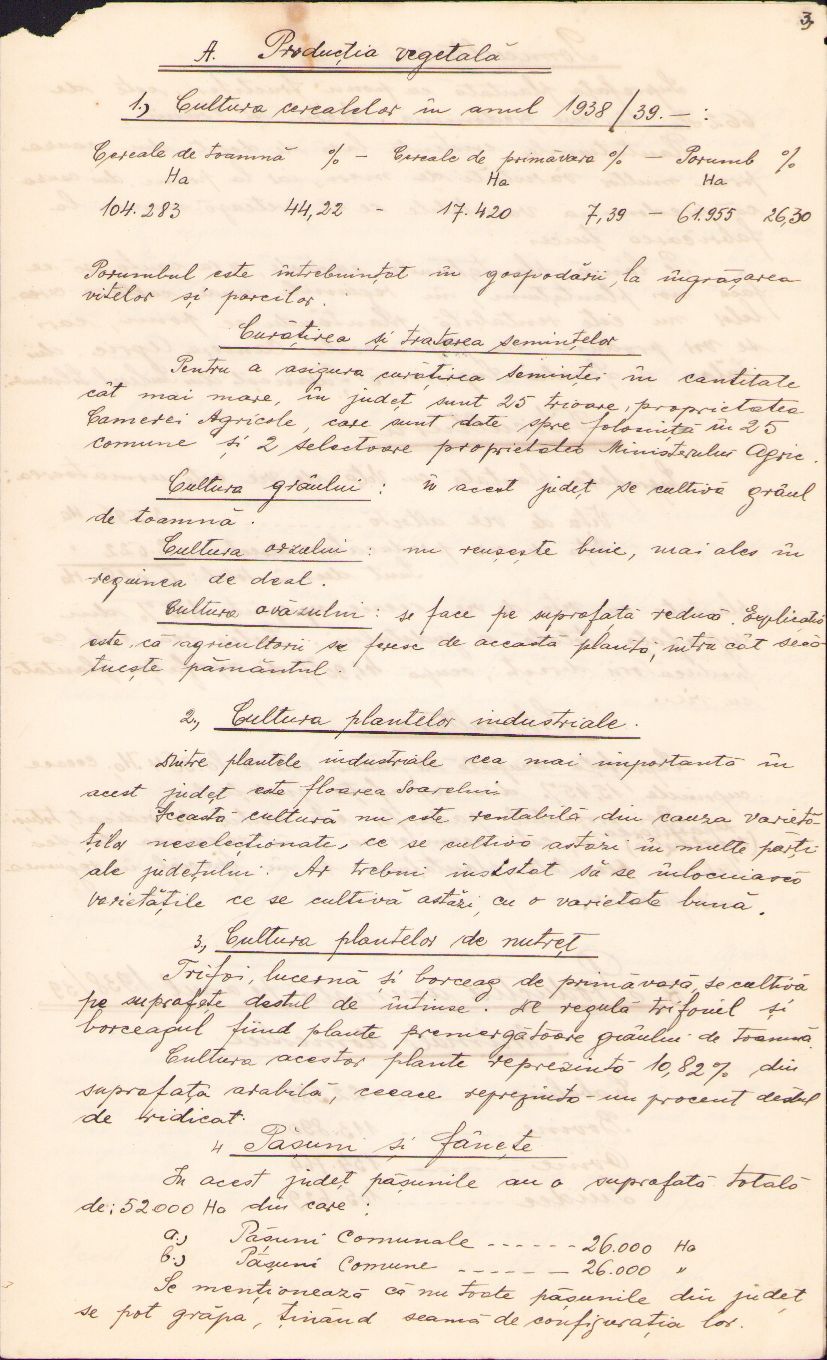 3,
A. Producția vegetală
1.) Cultura cerealelor în anul 1938/39. — :
Cereale de toamnă % — Cereale de primăvara % — Porumb %
Ha Ha Ha
104.283 44,22 - 17.420 7,39 — 61.955 26,30
Porumbul este întrebuințat în gospodării, la îngrășarea
vitelor și porcilor.
Curățirea și tratarea semințelor
Pentru a asigura curățirea seminței în cantitate
cât mai mare, în județ sunt 25 trioare, proprietatea
Camerei Agricole, care sunt date spre folosință în 25
comune și 2 selectoare proprietatea Ministerului Agric.
Cultura grâului : în acest județ se cultivă grâul
de toamnă.
Cultura orzului : nu reușește bine, mai ales în
regiunea de deal.
Cultura ovăzului : se face pe suprafață redusă. Explicația
este, că agricultorii se feresc de această plantă, întru cât secă-
tuește pământul.
2., Cultura plantelor industriale.
Dintre plantele industriale cea mai importantă în
acest județ este floarea soarelui.
Această cultură nu este rentabilă din cauza varietă-
ților neselecționate, ce se cultivă astăzi în multe părți
ale județului. Ar trebui insistat să se înlocuiască
varietățile ce se cultivă astăzi, cu o varietate bună.
3, Cultura plantelor de nutreț
Trifoi, lucernă și borceag de primăvară, se cultivă
pe suprafețe destul de întinse. De regulă trifoiul și
borceagul fiind plante premergătoare grâului de toamnă.
Cultura acestor plante reprezintă 10,82% din
suprafața arabilă, ceeace reprezintă un procent destul
de ridicat.
4 Pășuni și fânețe
In acest județ pășunile au o suprafață totală
de: 52000 Ha din care :
a.) Pășuni Comunale ------ 26.000 Ha
b.) Pășuni Comune ------ 26.000 "
Se menționează că nu toate pășunile din județ
se pot grăpa, ținând seamă de configurația lor.